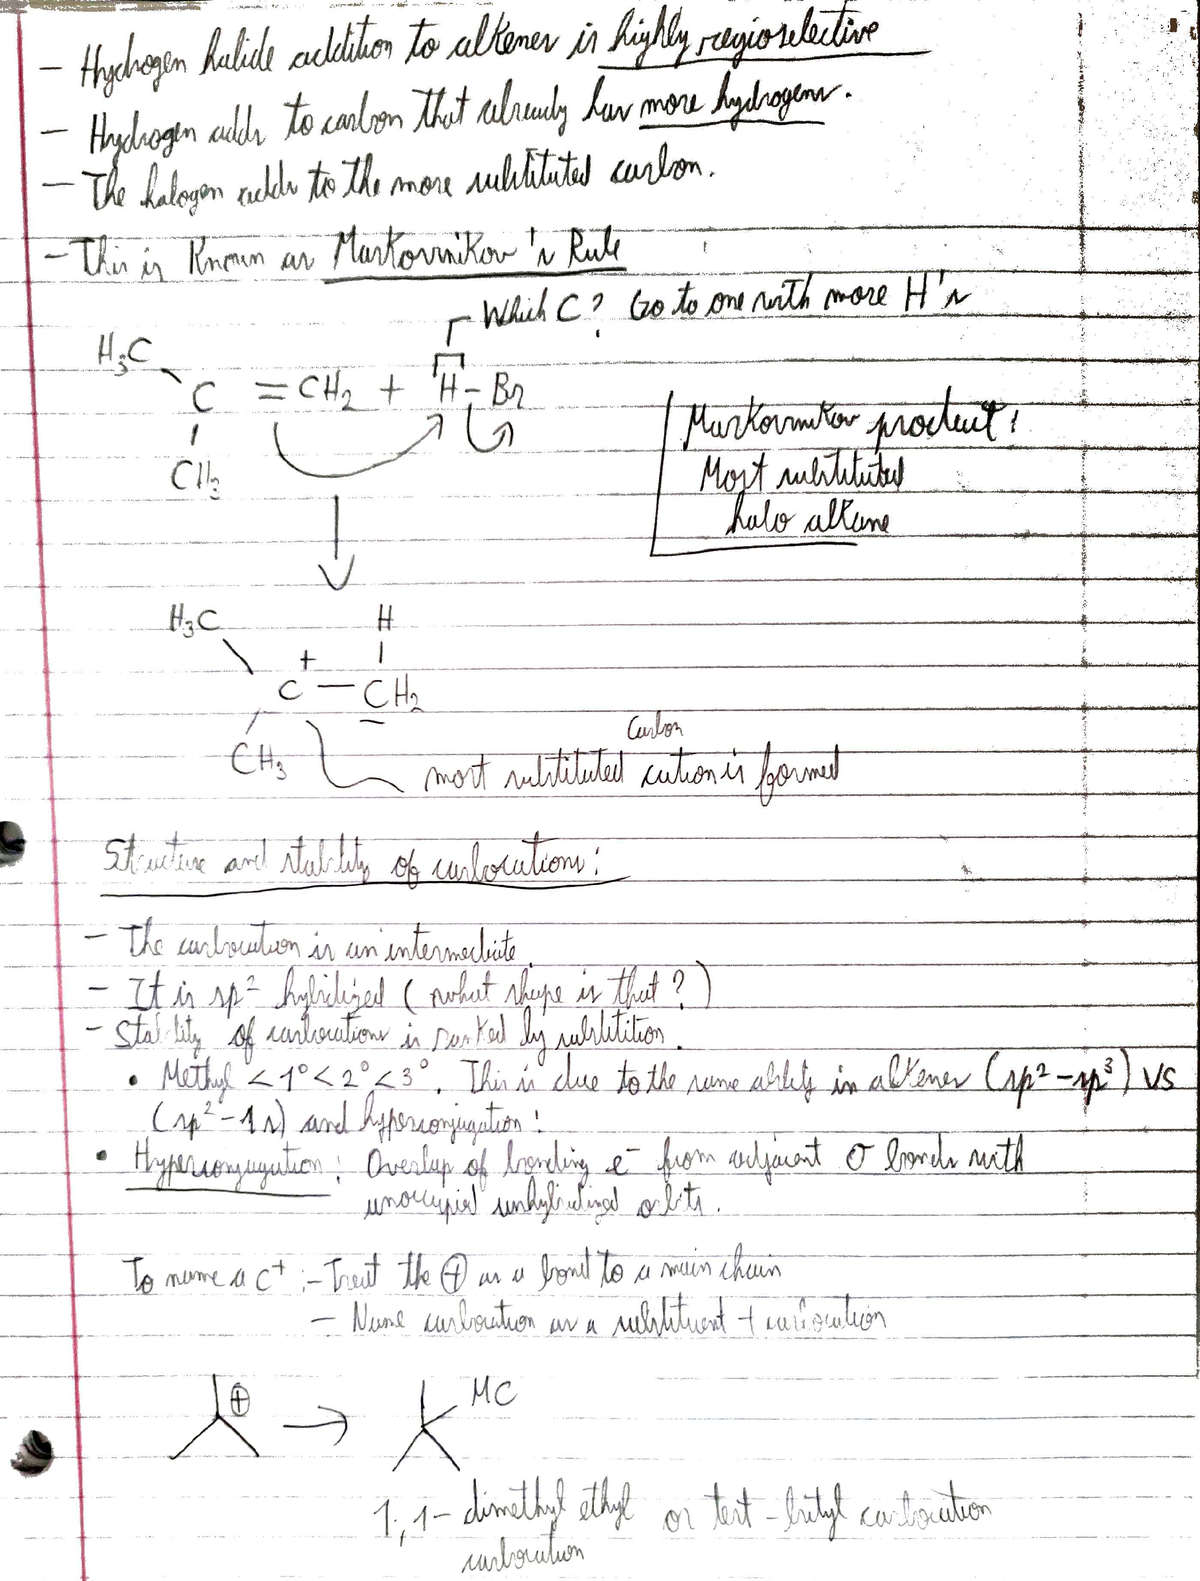 - Hydrogen halide addition to alkenes is highly regioselective
- Hydrogen adds to carbon that already has more hydrogens.
- The halogen adds to the more substituted carbon.
- This is known as Markovnikov's Rule
Which C? Go to one with more H's
H₃C
C = CH₂ + H - Br
CH₃
Markovnikov product:
Most substituted
halo alkane
H₃C H
+
C - CH₂
CH₃
Carbon
most substituted cation is formed
Structure and stability of carbocations:
- The carbocation is an intermediate.
- It is sp² hybridized (what shape is that?)
- Stability of carbocations is ranked by substitition.
• Methyl < 1° < 2° < 3°. This is due to the same ability in alkenes (sp² - sp³) VS
(sp² - 1s) and hyperconjugation:
• Hyperconjugation: Overlap of bonding e⁻ from adjacent σ bonds with
unoccupied unhybridized orbits.
To name a C⁺: - Treat the ⊕ as a bond to a main chain
- Name carbocation as a substituent + carbocation
⊕ → MC
1,1-dimethyl ethyl or tert-butyl carbocation
carbocation